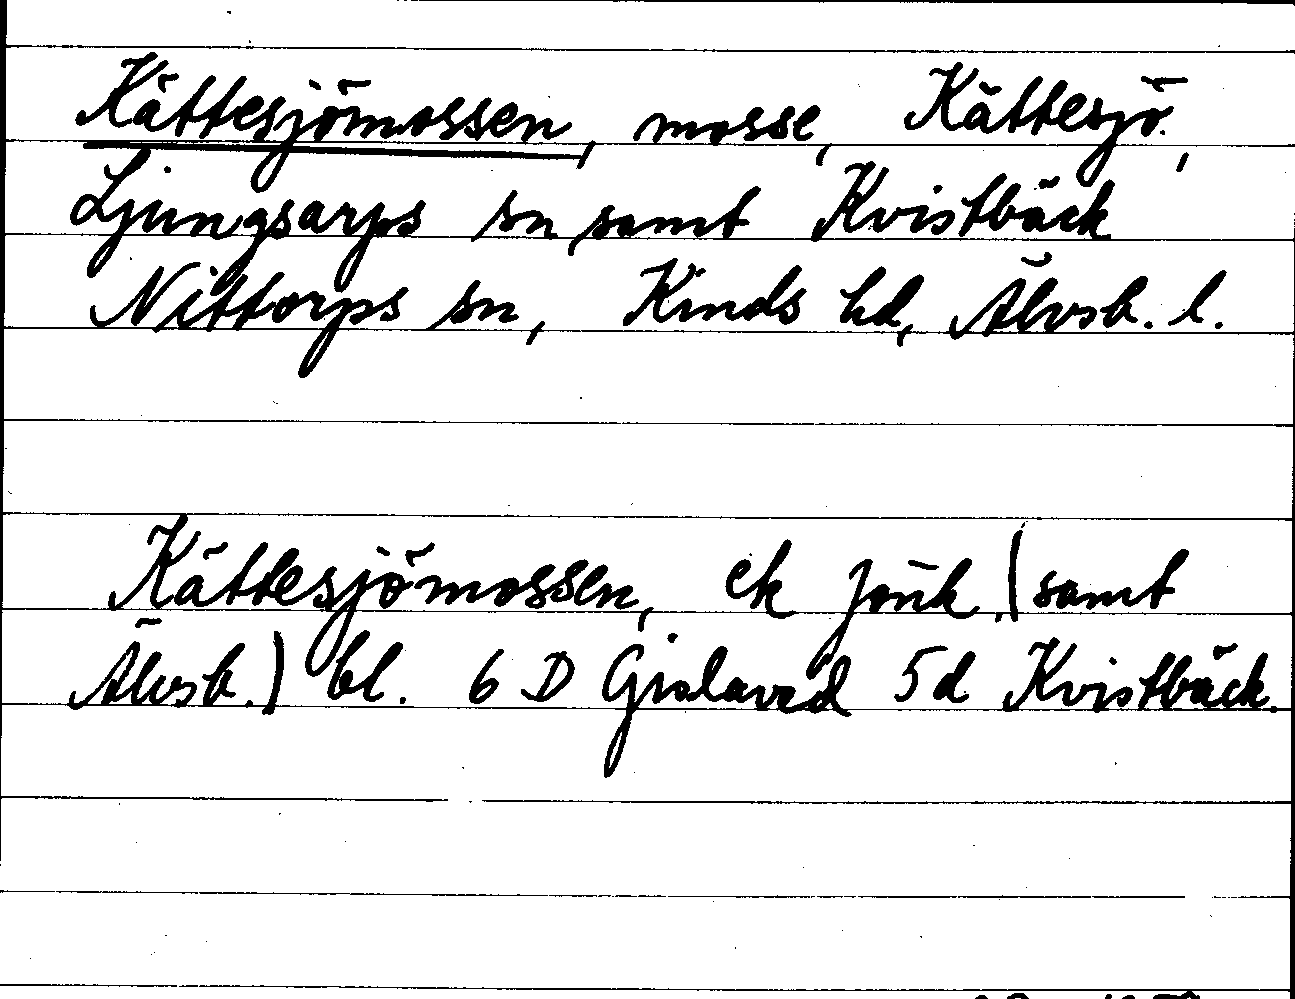 Kättesjömossen, mosse, Kättesjö,
Ljungsarps sn, samt Kvistbäck
Nittorps sn, Kinds hd, Älvsb. l.
Kättesjömossen, ek Jönk. (samt
Älvsb.) bl. 6 D Gislaved 5d Kvistbäck.